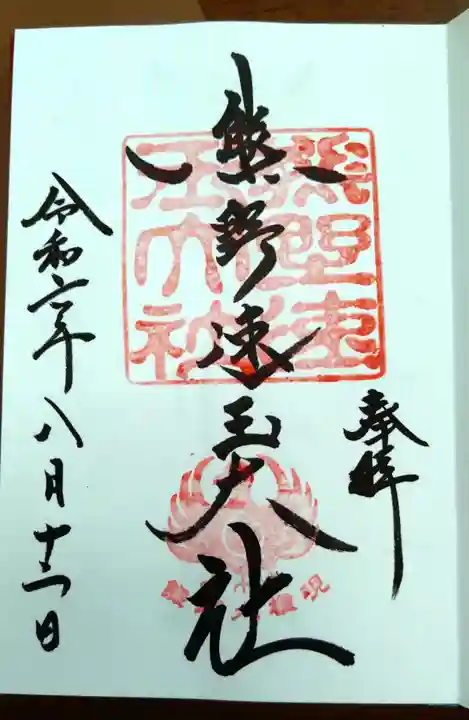 奉拝
熊野速玉大社
令和六年八月十二日
熊野速
玉大社